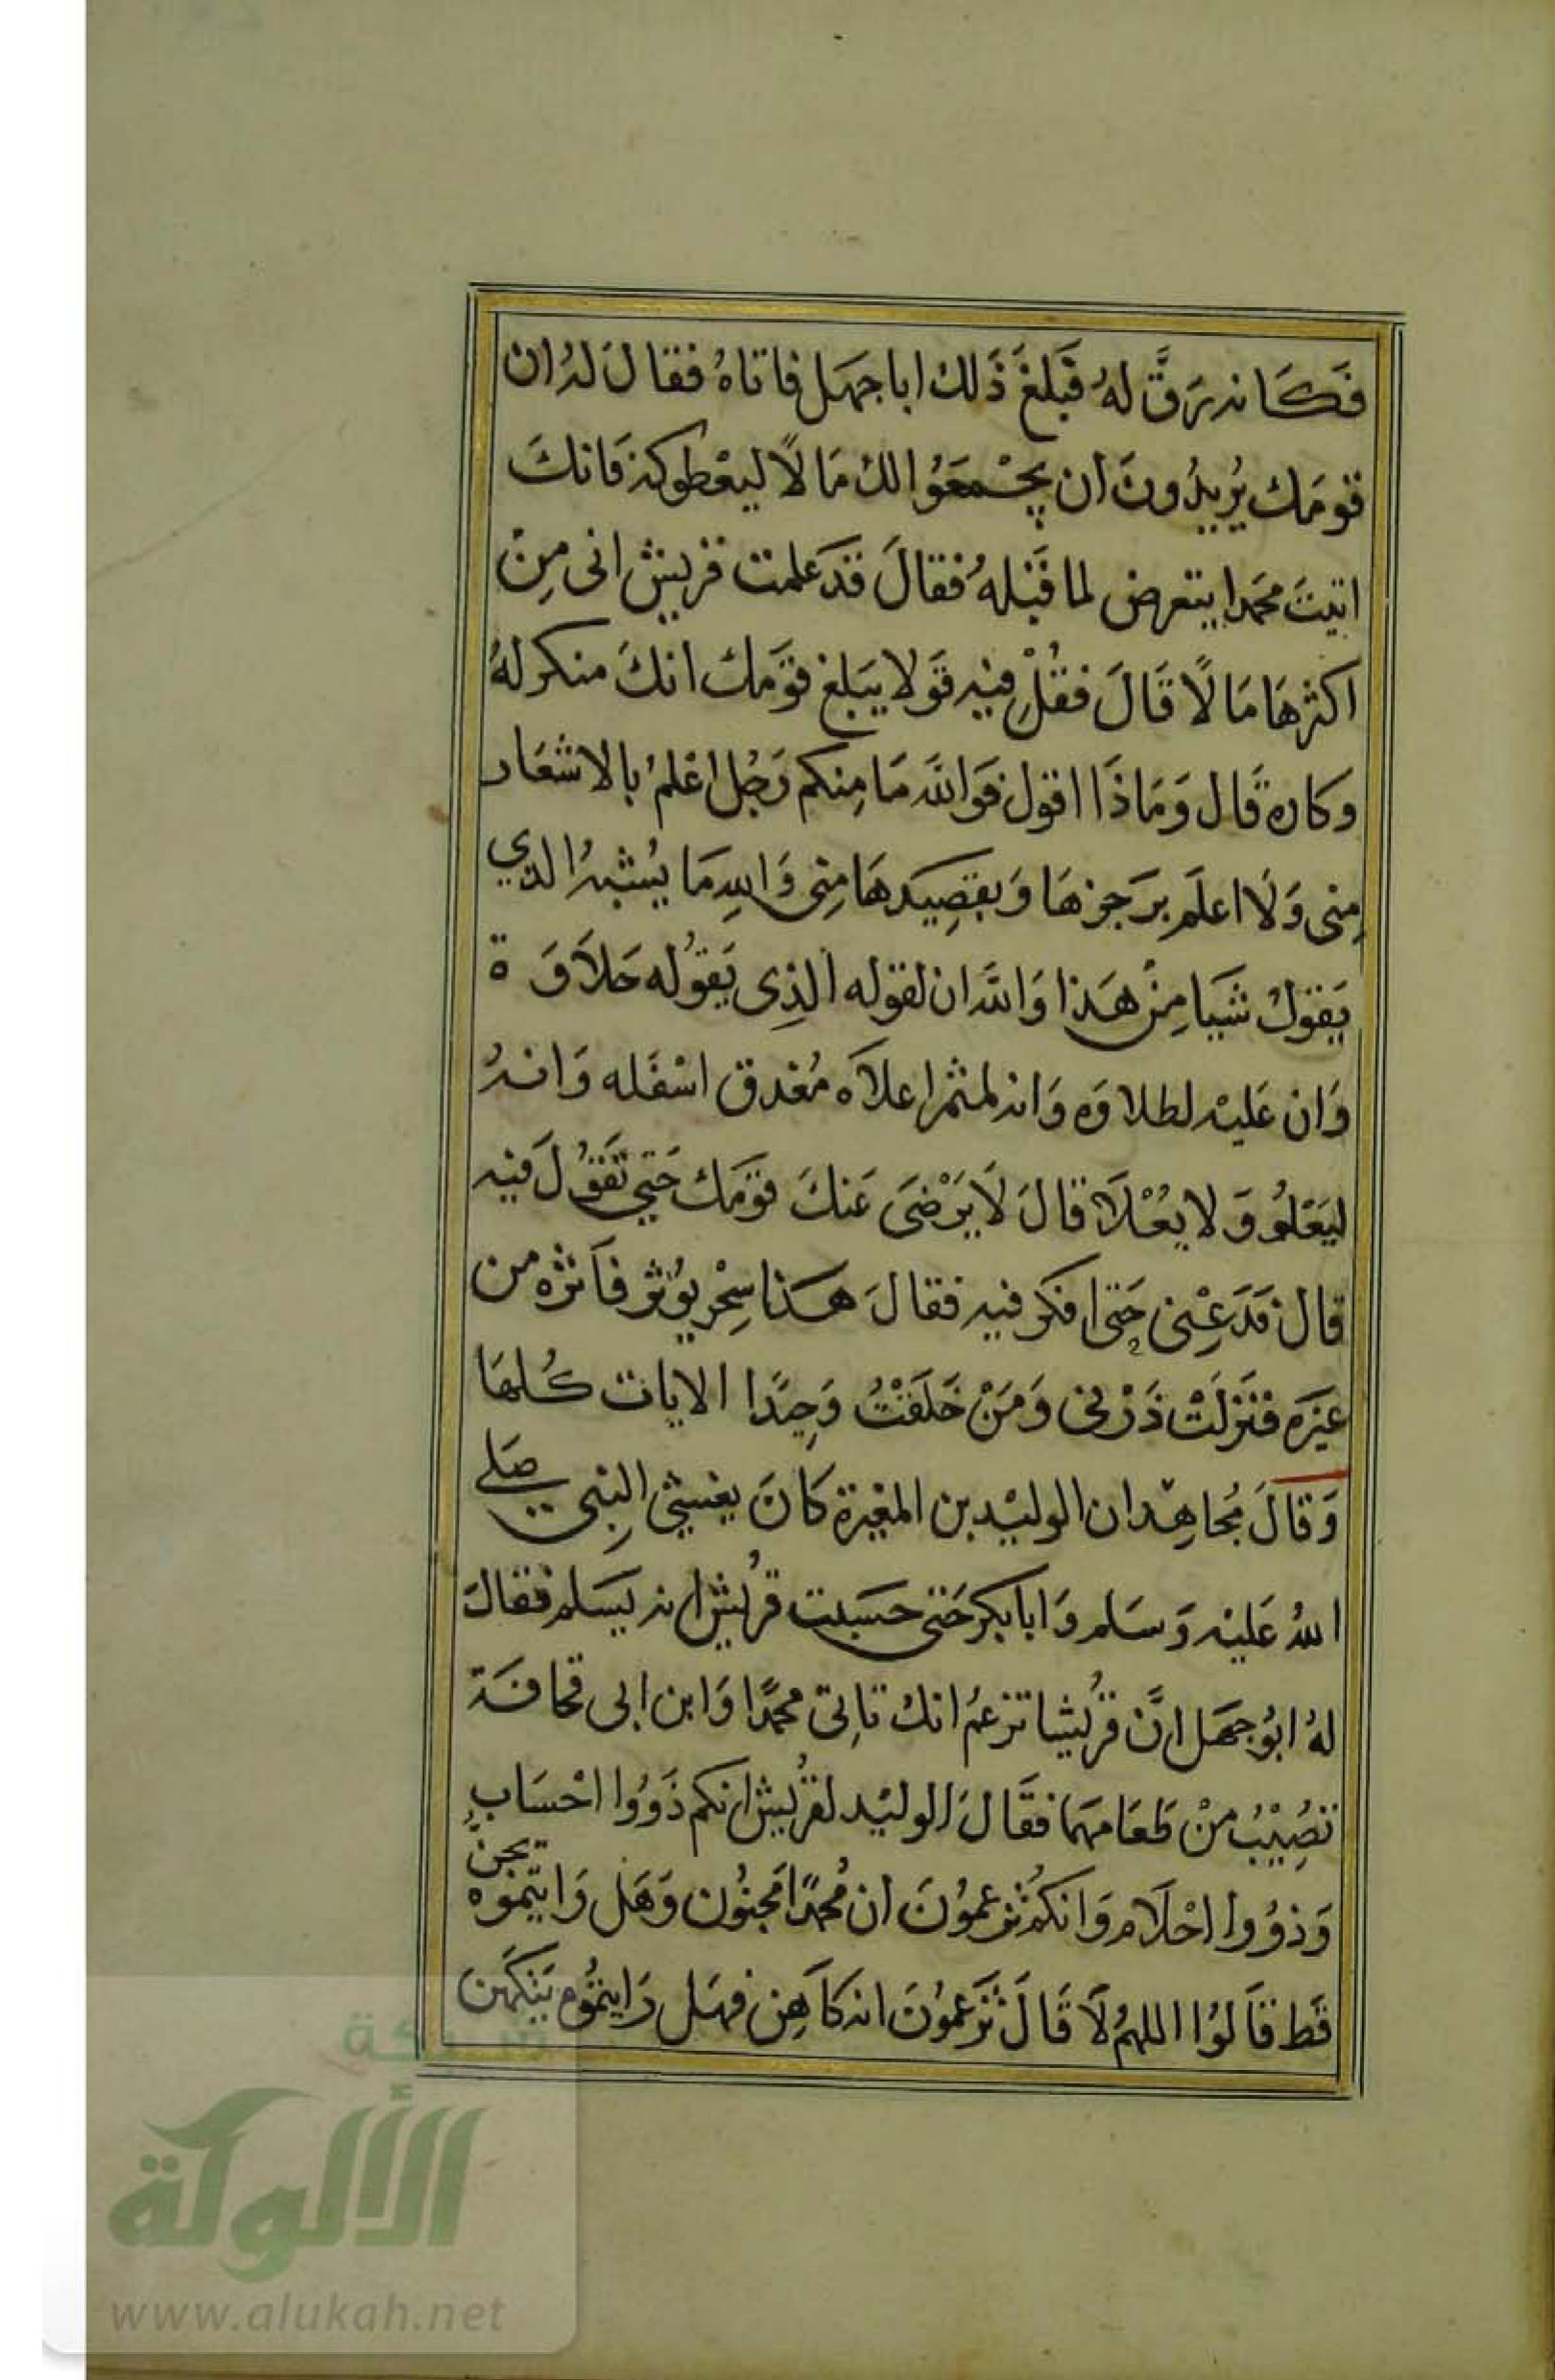 فَكَانه رَقَّ لهُ فَبَلغَ ذَلك ابا جهَل فاتاهُ فقالَ لهُ ان
قومَك يُريدُونَ ان يجْمعَوُا لك مَالًا ليعْطوكه فَانكَ
اتيتَ محمَدا يتعرض لما قَبْلهُ فقالَ قدَ علمت قريش اني مِنْ
اكثرهَا مَالًا قَالَ فقُلْ فيْه قَولا يبَلغ قوَمك انكَ منكر لهُ
وكاره قَال وَمَاذَا اقول فوَاللهَ مَا مِنكم رَجُل اعْلمُ بالاشعَار
مِني وَلَا اعلَم برَجزهَا وَبقصِيدَهَا مِني وَاللهِ مَا يُشْبهُ الذي
يَقوَلُ شَيا مِنْ هَذا وَاللهَ ان لقوله الذِى يَقوُله حَلاَوَة
وَان عَليْه لطلاوَه وَانه لمثمرا علاَه مُغدق اسْفَله وَانهُ
ليَعْلُو وَلا يُعْلَا قالَ لَا يَرْضَى عَنكَ قوَمك حَتي تَقوُلَ فيْه
قال فَدَعِنى حَتى افكر فيه فقالَ هَذا سِحْر يوُثر فَاثرْه من
غيَره فنَزلَتْ ذَرْنى وَمَنْ خَلَقَتْتُ وَحِيدًا الايات كُلهَا
وَقالَ مُجاهِد ان الوليْد بن المغيرة كَانَ يغشي النِبي صَلي
اللهُ عَليْه وَسَلم وَابا بكر حَتي حسَبت قرُيش انه يَسَلم فقالَ
لهُ ابوُ جهَل انَّ قرُيشا تزعمُ انك تاتِى محمدًا وَابن ابى قحافَة
تصُِيْبُ منْ طَعَامهما فقَالَ الوليْد لقرُيش انكم ذَوُوا احْسَابٍ
وَذوُوا احْلَام وَانكمُ تزعموُنَ ان مُحمدًا مَجنوُن وَهَل رَايتموه يجنَّ
قَط قاَلوُا اللهمُ لَا قَالَ تَزَعموُنَ انه كَاَهِن فهَل رَايتموُه يَتكَهن
شبكة
الألوكة
www.alukah.net